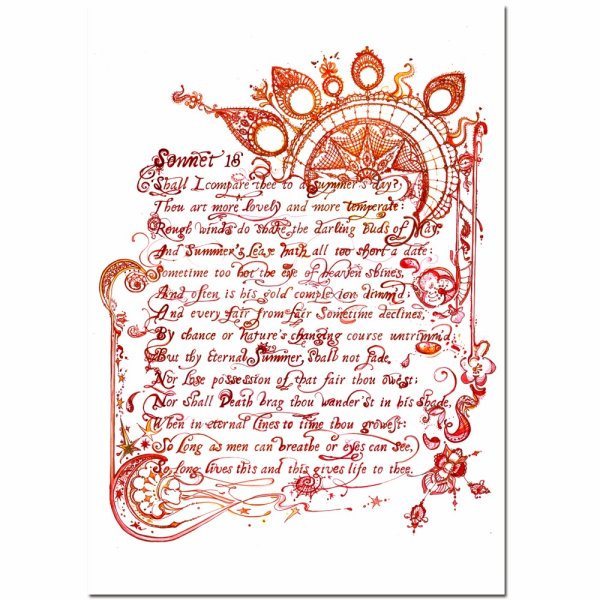 Sonnet 18
Shall I compare thee to a summer's day?
Thou art more lovely and more temperate:
Rough winds do shake the darling buds of May,
And Summer's Lease hath all too short a date:
Sometime too hot the eye of heaven shines,
And often is his gold complexion dimm'd;
And every fair from fair Sometime declines,
By chance or nature's changing course untrimm'd
But thy Eternal Summer, Shall not fade,
Nor Lose possession of that fair thou owest;
Nor shall Death brag thou wander'st in his shade,
When in eternal Lines to time thou growest:
So Long as men can breathe or eyes can see,
So Long lives this and this gives life to thee.